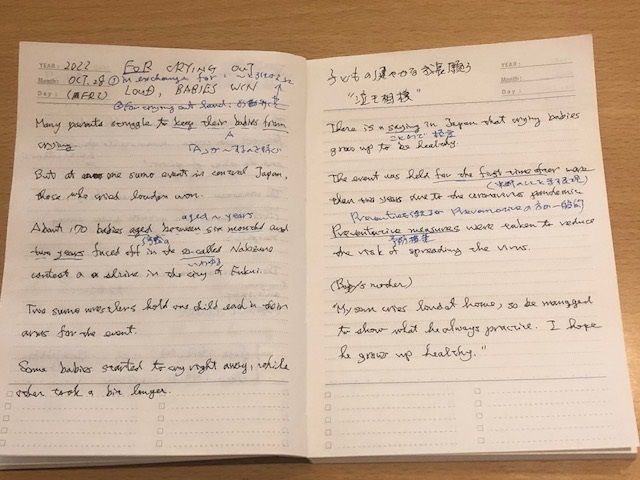 YEAR: 2022
FOR CRYING OUT
Month: OCT. 28 ① in exchange for :
Day: (FRI) LOUD, BABIES WIN
② For crying out loud:
Many parents struggle to keep their babies from
A
crying
「Aが
But at one sumo events in central Japan,
those who cried louder won.
aged ~ years
About 170 babies aged between six months and
two years faced off in the so-called Nakizumo
いわゆる
contest a a shrine in the city of Fukui.
Two sumo wrestlers hold one child each in their
arms for the event.
Some babies started to cry right away, while
other took a bit longer.
子どもの健やかな成長願う
YEAR:
Month:
"泣き相撲"
Day:
There is a saying in Japan that crying babies
ことわざ 格言
grow up to be healthy.
The event was held for the first time in over
than two years due to the coronavirus pandemic
Preventative measures were taken to reduce
the risk of spreading the virus.
(Baby's mother)
"My son cries loud at home, so be manged
to show what he always practice. I hope
he grows up healthy."